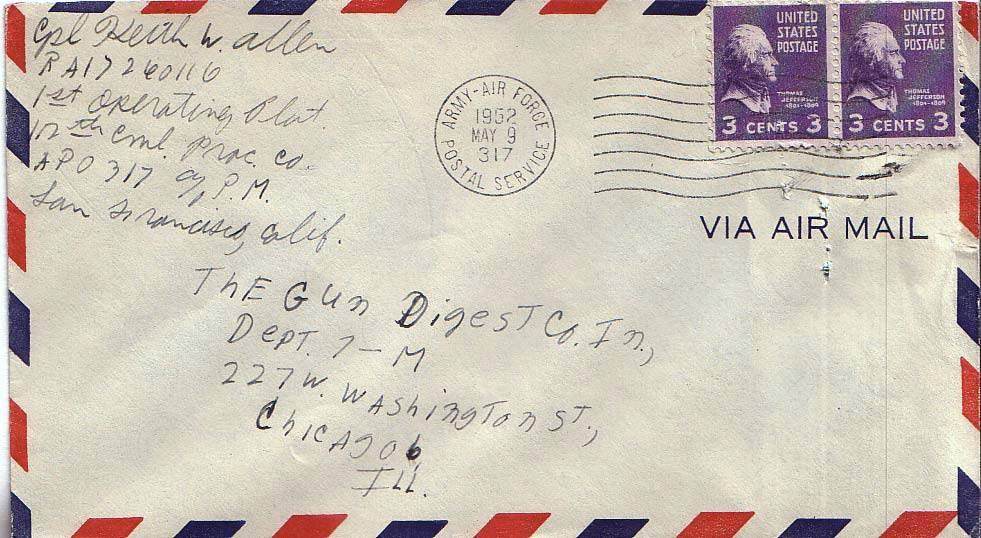 Cpl Keith W. Allen
RA17260116
1st Operating Plat.
1st Operating Plat.
Cml. Proc. Co.
APO 317 c/o P.M.
San Francisco, Calif.
ARMY-AIR FORCE
1952
MAY 9
317
POSTAL SERVICE
UNITED
STATES
POSTAGE
THOMAS
JEFFERSON
1801-1809
3 CENTS 3
UNITED
STATES
POSTAGE
THOMAS
JEFFERSON
1801-1809
3 CENTS 3
VIA AIR MAIL
The Gun Digest Co. In.,
Dept. 7-M
227 W. Washington St.,
Chicago 6,
Ill.